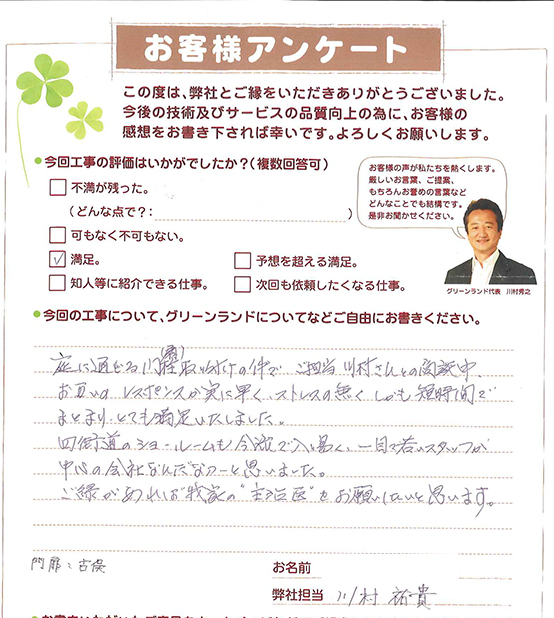 お客様アンケート
この度は、弊社とご縁をいただきありがとうございました。
今後の技術及びサービスの品質向上の為に、お客様の
感想をお書き下されば幸いです。よろしくお願いします。
●今回工事の評価はいかがでしたか?(複数回答可)
お客様の声が私たちを熱くします。
厳しいお言葉、ご提案、
もちろんお誉めの言葉など
どんなことでも結構です。
是非お聞かせください。
グリーンランド代表 川村秀之
不満が残った。
(どんな点で?: )
可もなく不可もない。
✓ 満足。
予想を超える満足。
知人等に紹介できる仕事。
次回も依頼したくなる仕事。
●今回の工事について、グリーンランドについてなどご自由にお書きください。
庭に通ずる門扉取り付けの件で ご担当 川村さんとの商談中、
お互いのレスポンスが実に早く、ストレスの無く しかも 短時間で
まとまり、とても満足いたしました。
四街道のショールームも 今 で入り易く、一目で若いスタッフが
中心の会社なんだなァーと思いました。
ご縁があれば 我家の"主治医"をお願いしたいと思います。
門扉:
お名前
弊社担当 川村 祐貴